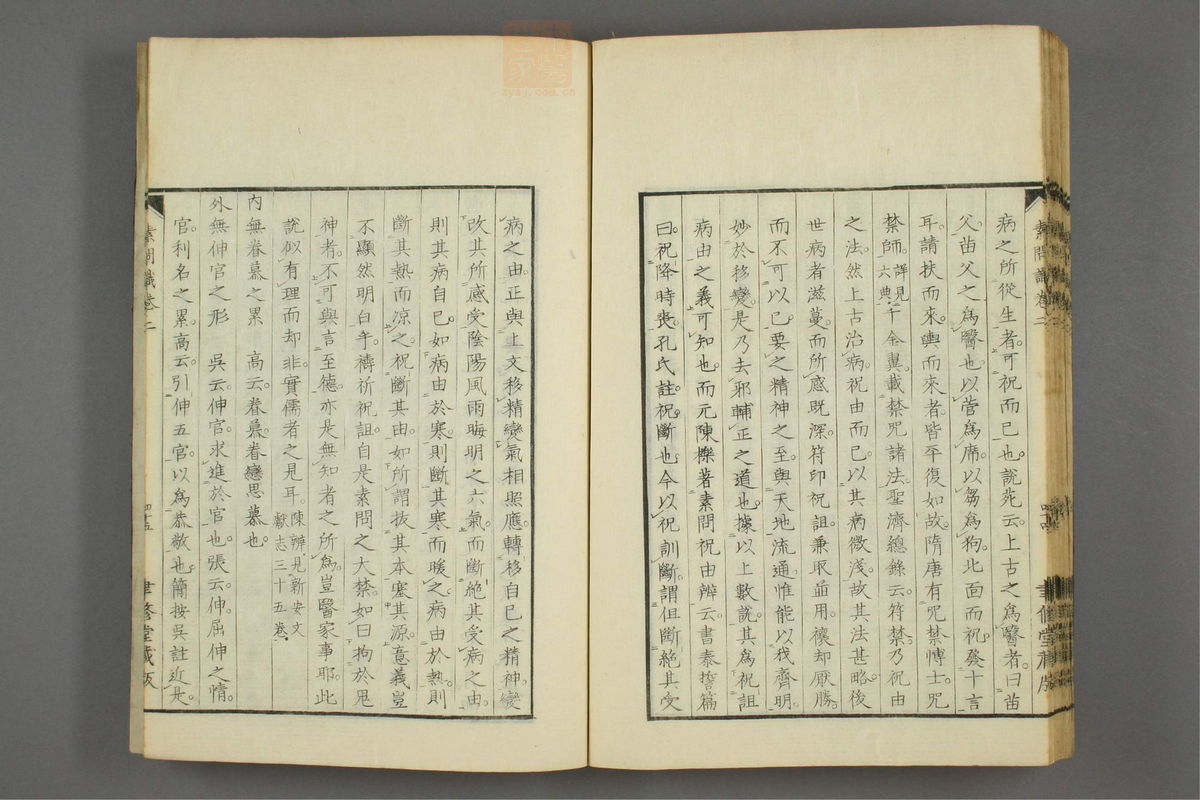 病之所從生者。可祝而已也。說苑云。上古之為醫者。曰苗
父。苗父之為醫也。以菅為席。以芻為狗。北面而祝。發十言
耳。請扶而來。輿而來者。皆平復如故。隋唐有呪禁博士。呪
禁師。詳見六典。千金翼載禁咒諸法。聖濟總錄云。符禁。乃祝由
之法。然上古治病。祝由而已。以其病微淺。故其法甚略。後
世病者滋蔓。而所感既深。符印祝詛。兼取並用。禳却厭勝。
而不可以已。要之精神之至。與天地流通。惟能以我齊明。
妙於移變。是乃去邪輔正之道也。據以上數說。其為祝詛
病由之義可知也。而元陳櫟著素問祝由辨云。書泰誓篇
曰。祝降時喪。孔氏註。祝斷也。今以祝訓斷。謂但斷絕其受
素問識卷二
四十四
聿修堂藏版
病之由。正與上文移精變氣相照應。轉移自己之精神。變
改其所感受陰陽風雨晦明之六氣。而斷絕其受病之由。
則其病自已。如病由於寒。則斷其寒而暖之。病由於熱。則
斷其熱而凉之。祝斷其由。如所謂拔其本塞其源。意義豈
不顯然明白乎。禱祈祝詛。自是素問之大禁。如曰拘於鬼
神者。不可與言至德。亦是無知者之所為。豈醫家事耶。此
說似有理而却非。實儒者之見耳。陳辨。見新安文獻志三十五卷。
內無眷慕之累　高云。眷慕。眷戀思慕也。
外無伸官之形　吳云。伸官。求進於官也。張云。伸。屈伸之情。
官。利名之累。高云。引伸五官。以為恭敬也。簡按吳註近是。
素問識卷二
四十五
聿修堂藏版